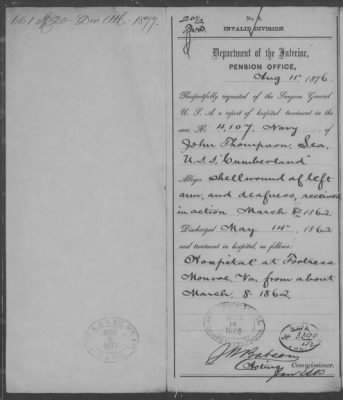 661
1877.
No. 8.
INVALID DIVISION.
Department of the Interior,
PENSION OFFICE,
Aug 11", 1876.
Respectfully requested of the Surgeon General
U. S. A. a report of hospital treatment in the
case, No. 4,107, Navy of
John Thompson, Sea.
U.S.S. "Cumberland"
Alleges shell wound of left
arm, and deafness, received
in action March 8" 1862
Discharged May 1862
and treatment in hospital, as follows:
Hospital at Fortress
Monroe, Va, from about
March, 8- 1862.
NOV
1877
14
Acting Commissioner.